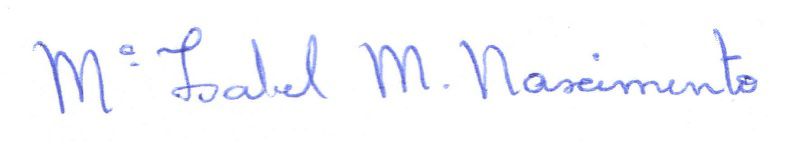 Mª Isabel M. Nascimento